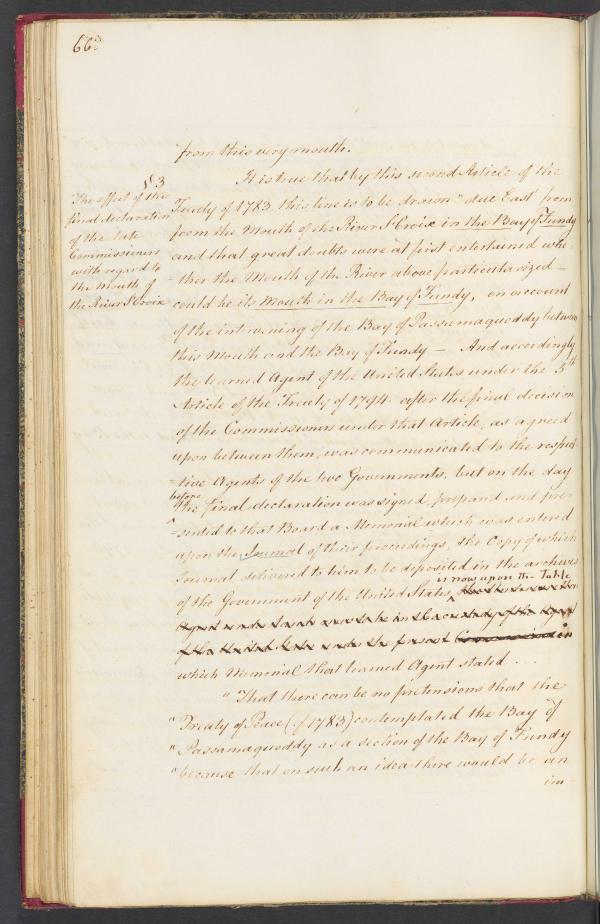 66.
from this very mouth.
§ 3
The effect of the
final declaration
of the late
Commissioners
with regard to
the Mouth of
the River St Croix
It is true that by this second Article of the
Treaty of 1783 this line is to be drawn "due East from
from the Mouth of the River St Croix in the Bay of Fundy
and that great doubts were at first entertained whe-
-ther the Mouth of the River above particularized
could be its Mouth in the Bay of Fundy, on account
of the intervening of the Bay of Passamaquoddy between
this Mouth and the Bay of Fundy — And accordingly
the learned Agent of the United States under the 5th
Article of the Treaty of 1794 after the final decision
of the Commissioners under that Article, as agreed
upon between them, was communicated to the respec-
-tive Agents of the two Governments, but on the day
before
the final declaration was signed, prepared and pre-
-sented to that Board a Memorial which was entered
upon the Journal of their proceedings, the Copy of which
Journal delivered to him to be deposited in the archives
is now upon the Table
of the Government of the United States
of the United States under the present
which Memorial that learned Agent stated ...
"That there can be no pretensions that the
"Treaty of Peace (of 1783) contemplated the Bay of
"Passamaquoddy as a section of the Bay of Fundy
"because that on such an idea there would be an
im-